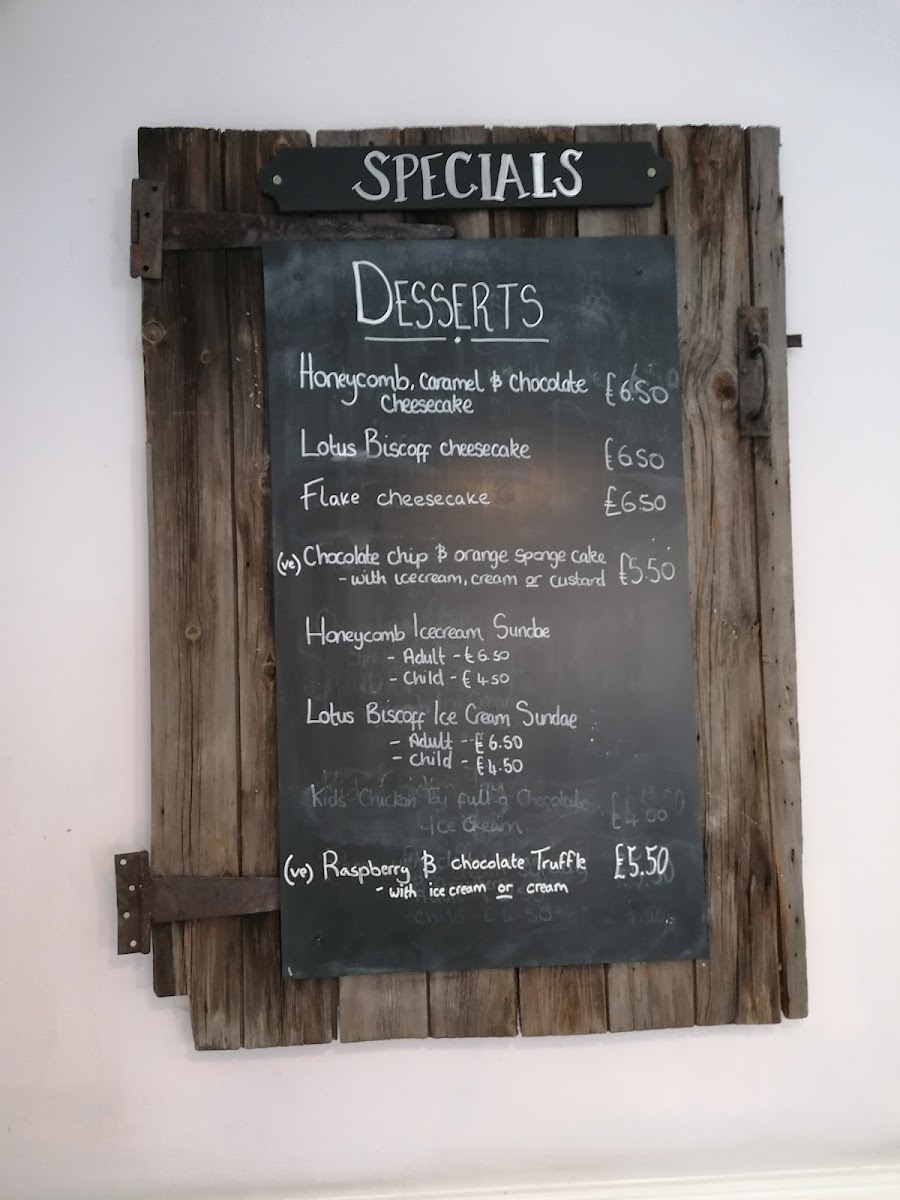 SPECIALS
DESSERTS
Honeycomb, caramel & chocolate £6.50
cheesecake
Lotus Biscoff cheesecake £6.50
Flake cheesecake £6.50
(ve) Chocolate chip & orange sponge cake £5.50
- with icecream, cream or custard
Honeycomb Icecream Sundae
- Adult - £6.50
- Child - £4.50
Lotus Biscoff Ice Cream Sundae
- Adult - £6.50
- Child - £4.50
Kids Chicken full Chocolate £4.00
Ice Cream
(ve) Raspberry & chocolate Truffle £5.50
- with ice cream or cream
Child - £4.50